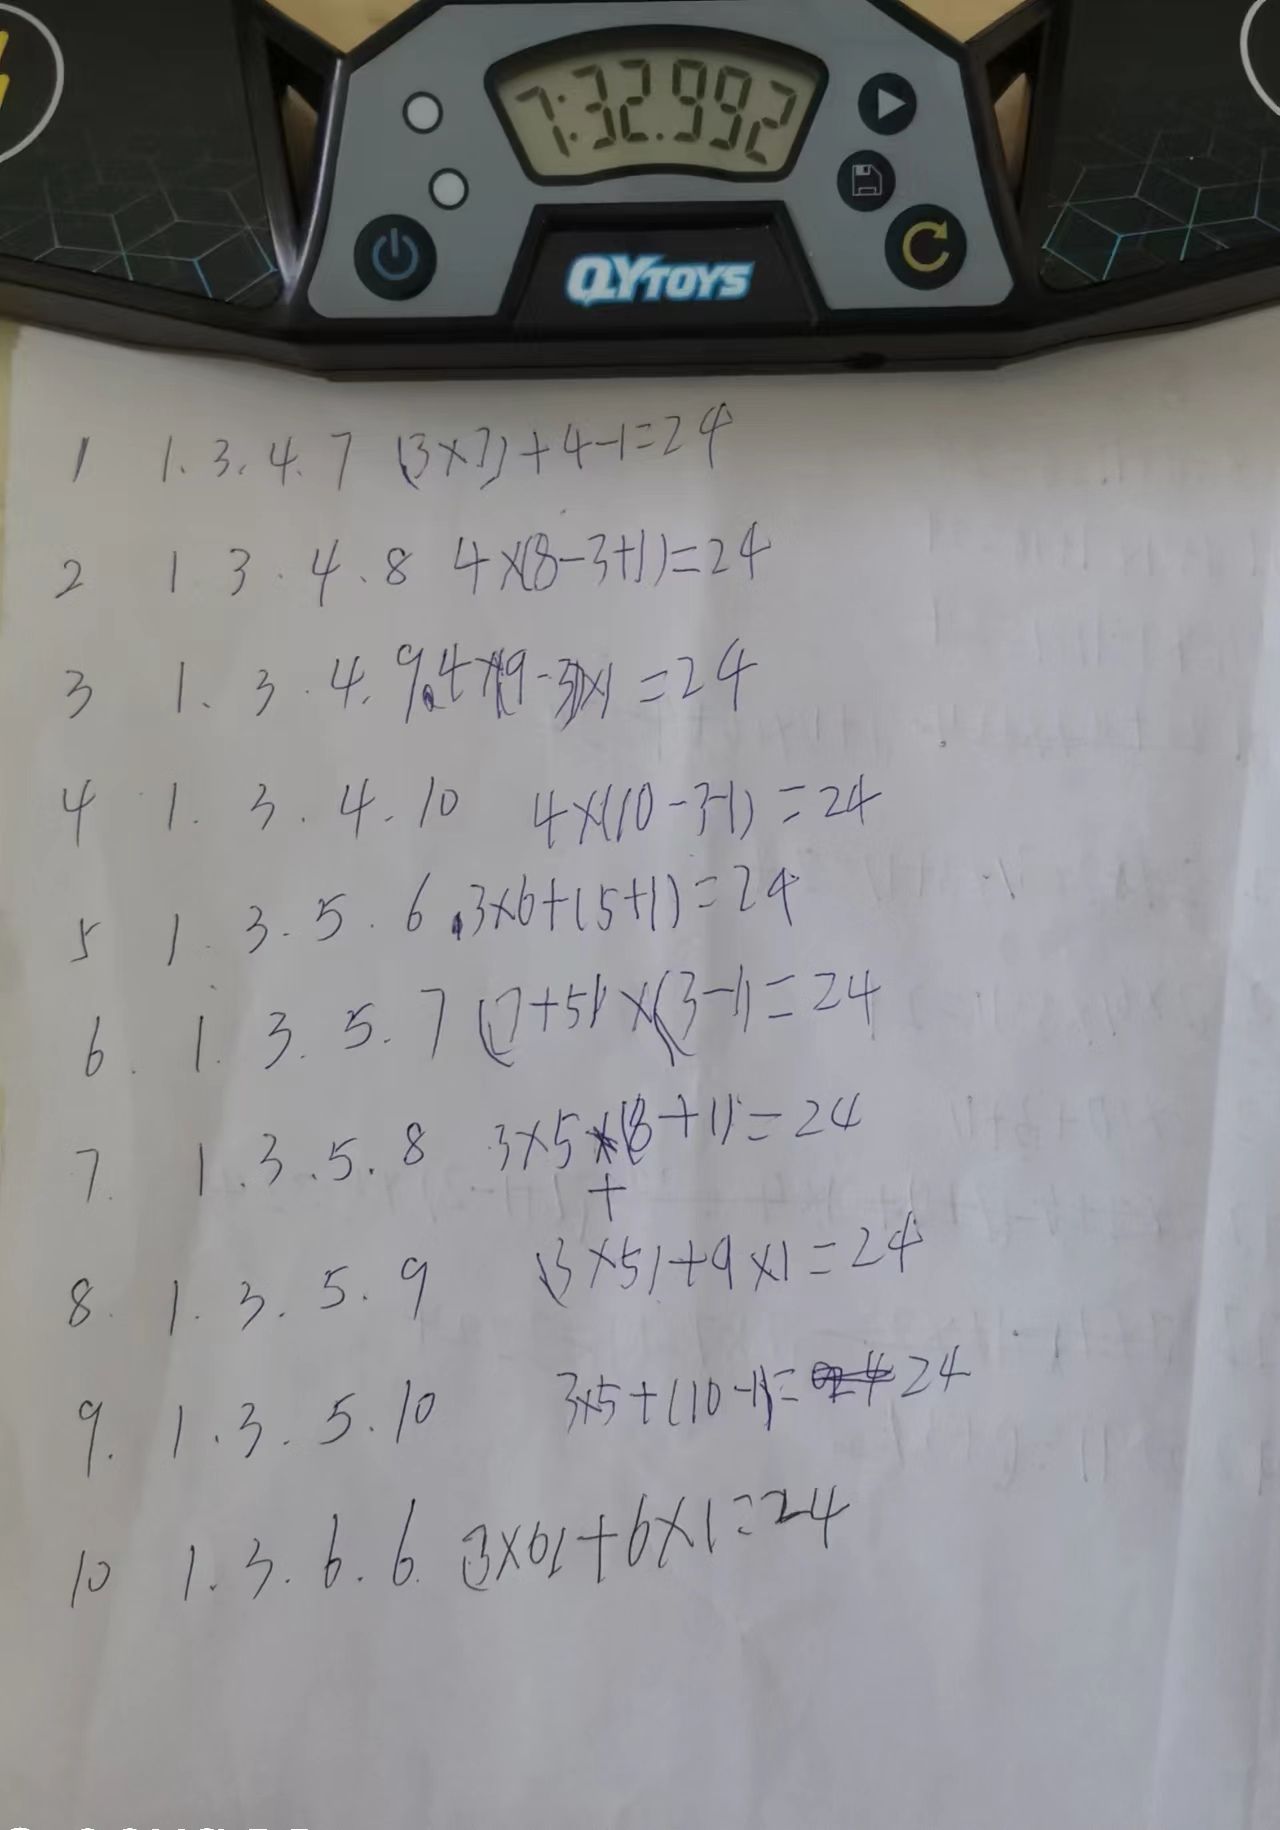 7:32.992
QYTOYS
1 1.3.4.7 (3×7)+4-1=24
2 1 3.4.8 4×(8-3+1)=24
3 1.3.4.9.4×(9-3)×1=24
4 1.3.4.10 4×(10-3-1)=24
5 1.3.5.6.3×6+(5+1)=24
6. 1.3.5.7 (7+5)×(3-1)=24
7. 1.3.5.8 3×5+(8+1)=24
8. 1.3.5.9 (3×5)+9×1=24
9. 1.3.5.10 3×5+(10-1)=24
10 1.3.6.6. (3×6)+6×1=24